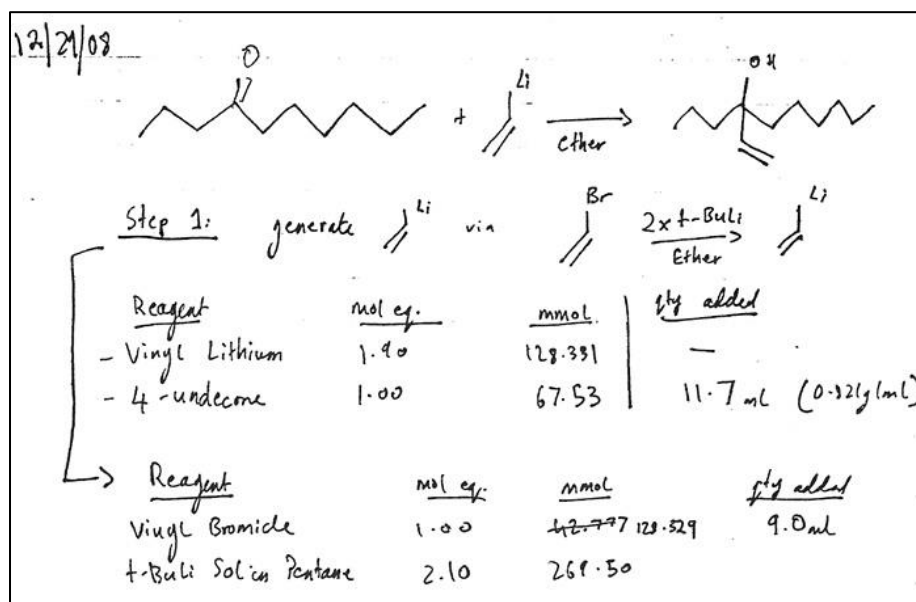 12/29/08
O
Li
OH
+
Ether
Step 1: generate Li via Br 2x t-BuLi Li
Ether
Reagent mol eq. mmol. qty added
- Vinyl Lithium 1.90 128.331 —
- 4-undecone 1.00 67.53 11.7 ml (0.821g/ml)
Reagent mol eq. mmol qty added
Vinyl Bromide 1.00 42.777 128.329 9.0ml
t-BuLi Sol in Pentane 2.10 269.50